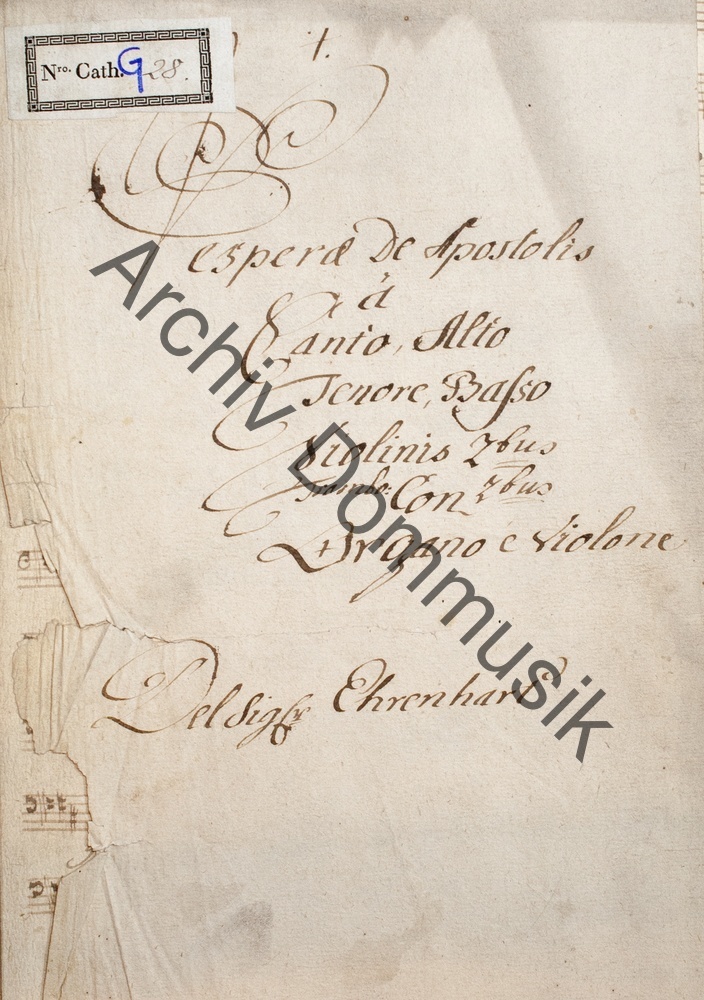 Nro. Cath. G 28.
Vesperæ De Apostolis
à
Canto, Alto
Tenore, Basso
Violinis 2bus
Trombo: Con 2bus
Organo e Violone
Del Sig
Ehrenhart
Archiv Dommusik